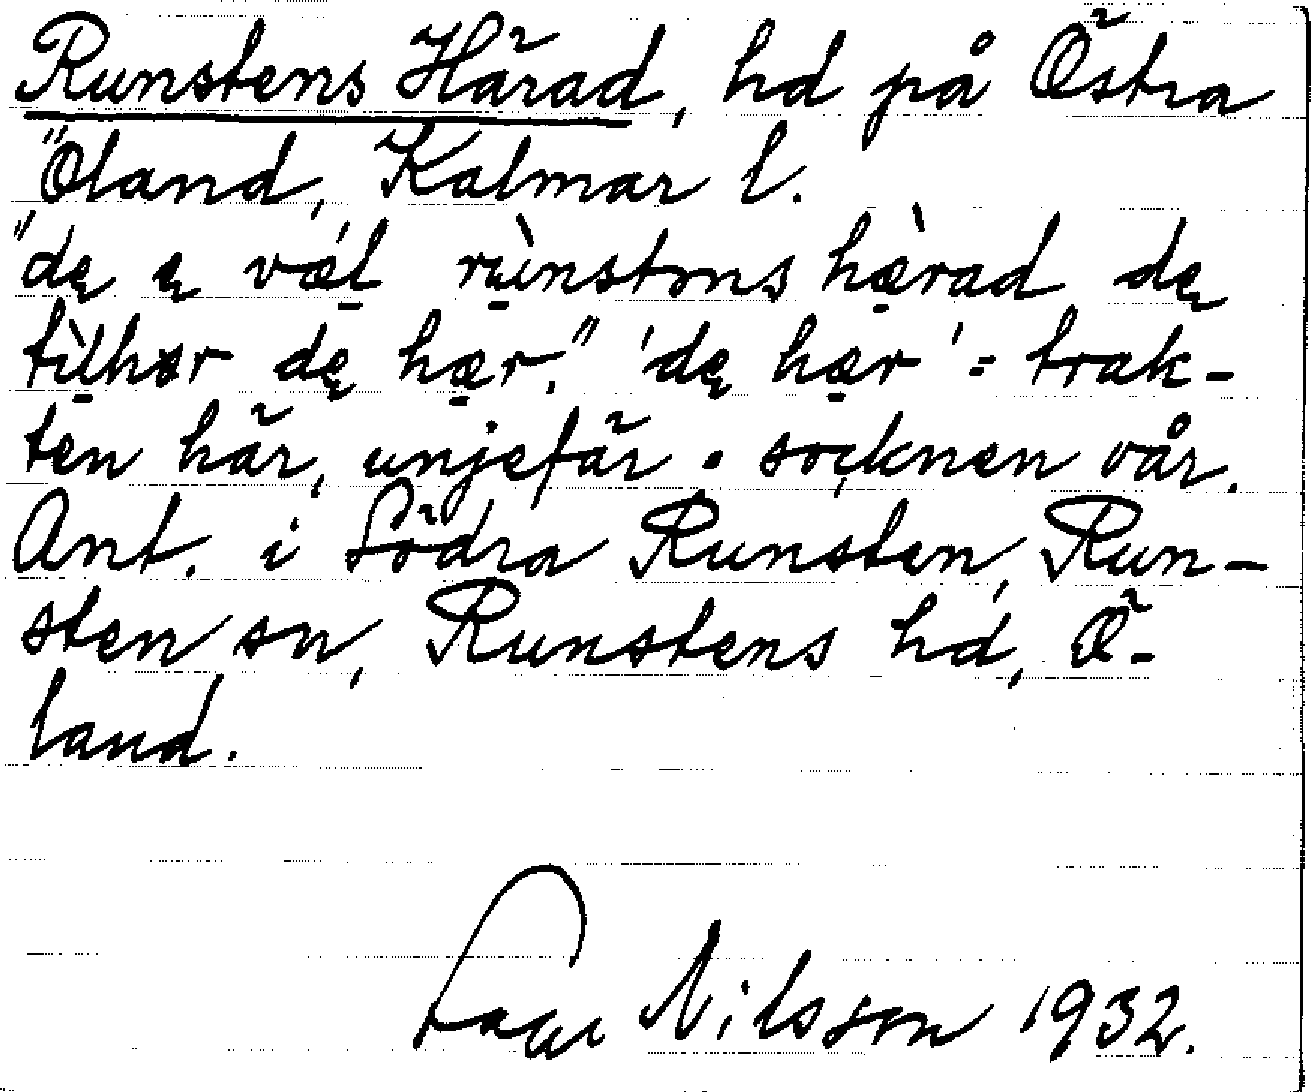 Runstens Härad, hd på Östra
Öland, Kalmar l.
"dę ę væ̱l rù̱nstɷns hæ̱rad dę
tì̱lhør dę hæ̱r." 'dę hæ̱r' = trak-
ten här, unjefär. socknen vår.
Ant. i Södra Runsten, Run-
sten sn, Runstens hd, Ö-
land.
Nilsson 1932.